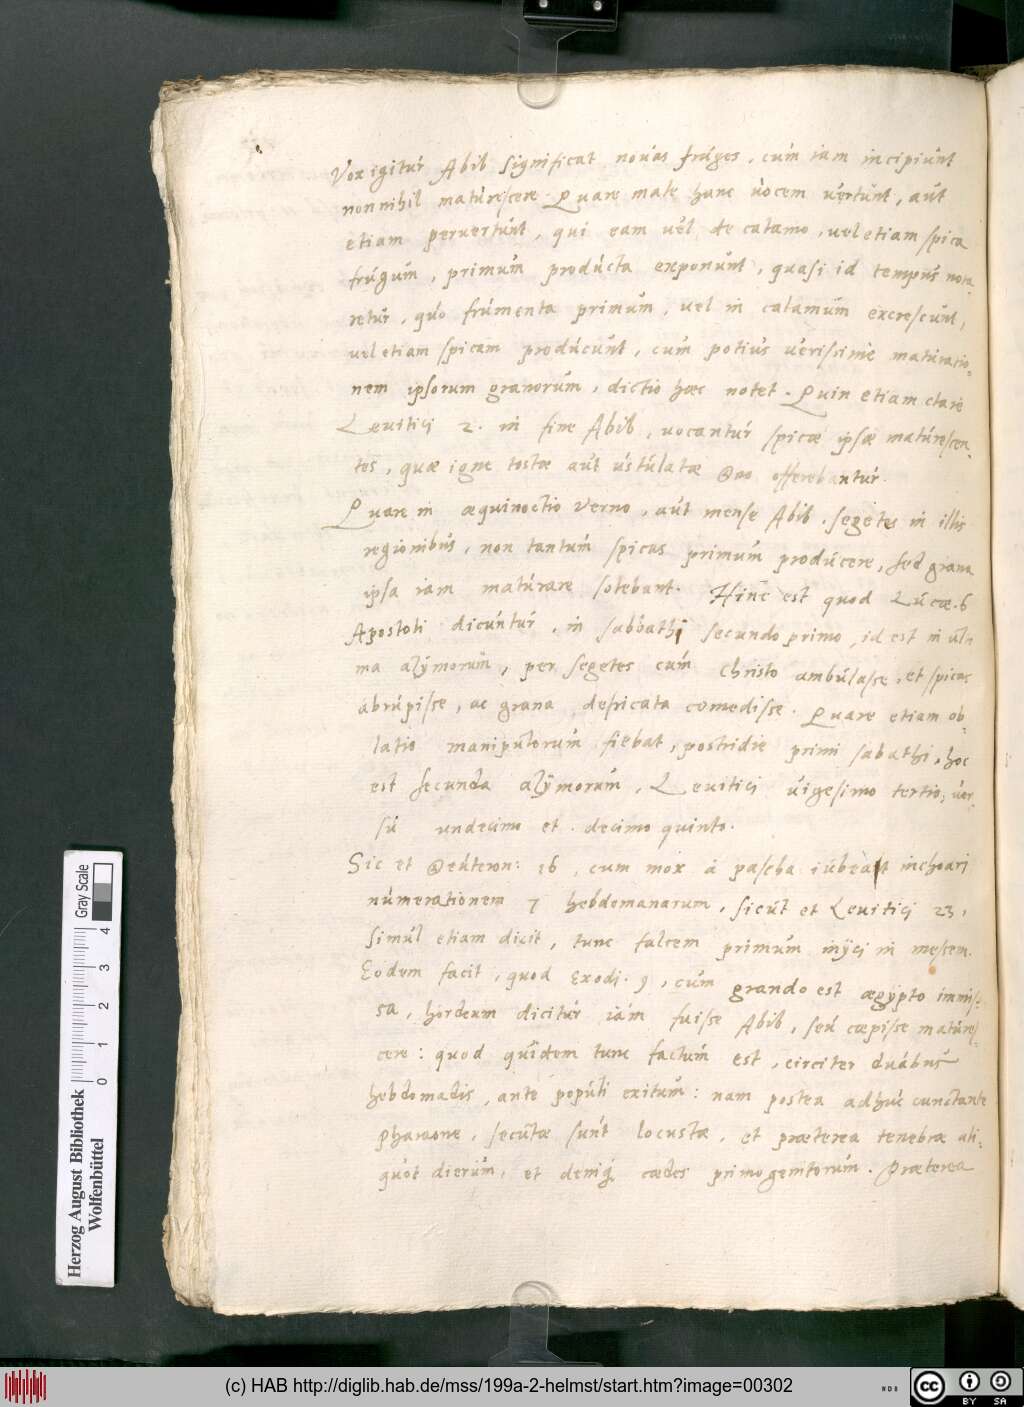 Vox igitur Abib significat novas fruges, cum iam incipiunt
nonnihil maturescere. Quare male hanc vocem vertunt, aut
etiam pervertunt, qui eam vel de calamo, vel etiam spica
frugum, primum producta exponunt, quasi id tempus nota-
retur, quo frumenta primum, vel in calamum excrescunt,
vel etiam spicam producunt, cum potius verissime maturatio-
nem ipsorum granorum, dictio haec notet. Quin etiam clare
Levitici 2. in fine Abib, vocantur spicae ipsae maturescen-
tes, quae igne tostae aut ustulatae Deo offerebantur.
Quare in aequinoctio verno, aut mense Abib, segetes in illis
regionibus, non tantum spicas primum producere, sed grana
ipsa iam maturare solebant. Hinc est quod Lucae. 6
Apostoli dicuntur, in sabbathi secundo primo, id est in ulti
ma azymorum, per segetes cum Christo ambulasse, et spicas
abrupisse, ac grana defricata comedisse. Quare etiam ob-
latio manipulorum fiebat, postridie primi sabathi, hoc
est secunda azymorum, Levitici vigesimo tertio, ver-
su undecimo et decimo quinto.
Sic et Deuteron: 16, cum mox a pascha iubeat inchoari
numerationem 7 hebdomanarum, sicut et Levitici 23,
simul etiam dicit, tunc falcem primum inijci in messem.
Eodem facit, quod Exodi. 9, cum grando est aegypto immis-
sa, hordeum dicitur iam fuisse Abib, seu caepisse mature-
cere: quod quidem tunc factum est, circiter duabus
hebdomadis, ante populi exitum: nam postea adhuc cunctante
Pharaone, secutae sunt locustae, et praeterea tenebrae ali-
quot dierum, et deniq; caedes primogenitorum. Praeterea
Gray Scale
0 1 2 3 4
Herzog August Bibliothek
Wolfenbüttel
(c) HAB http://diglib.hab.de/mss/199a-2-helmst/start.htm?image=00302
WDB
cc BY SA